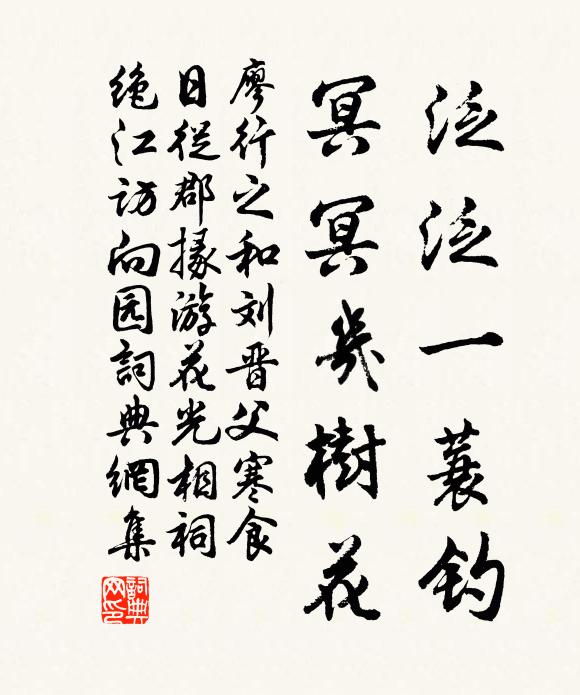 泛泛一蓑釣
冥冥幾樹花
廖行之和刘晋父寒食
日從郡掾游花光相祠
绝江訪向园詞典網集
詞典
网印